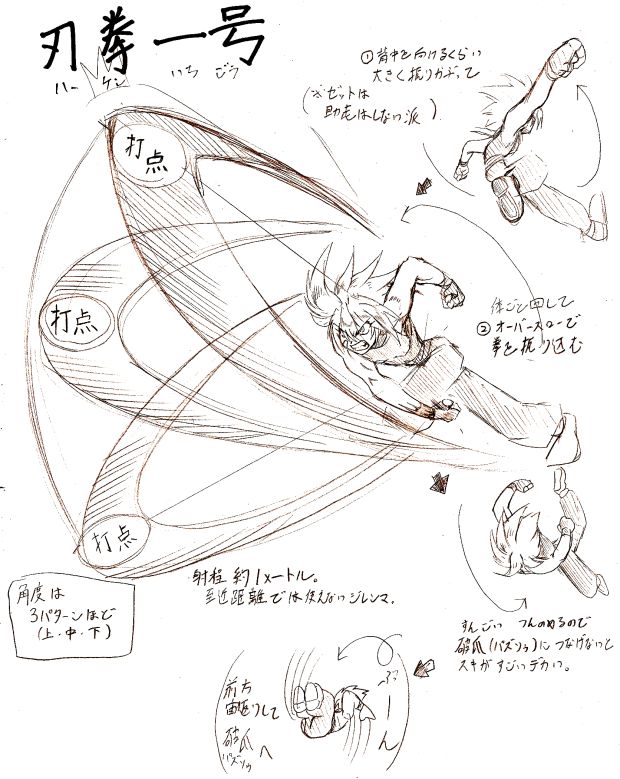 刃拳一号
ハー ケン いち ごう
①背中を向けるくらい
大きく振りかぶって
(※ゼットは
助走はしない派)
打点
打点
打点
体ごと回して
②オーバースローで
拳を振り込む
射程 約1メートル。
至近距離では使えないジレンマ。
角度は
3パターンほど
(上・中・下)
すんごい つんのめるので
破爪(バズソウ)につなげないと
スキがすごいデカい。
前方
宙返りして
破爪へ
バズソウ
ぶーん